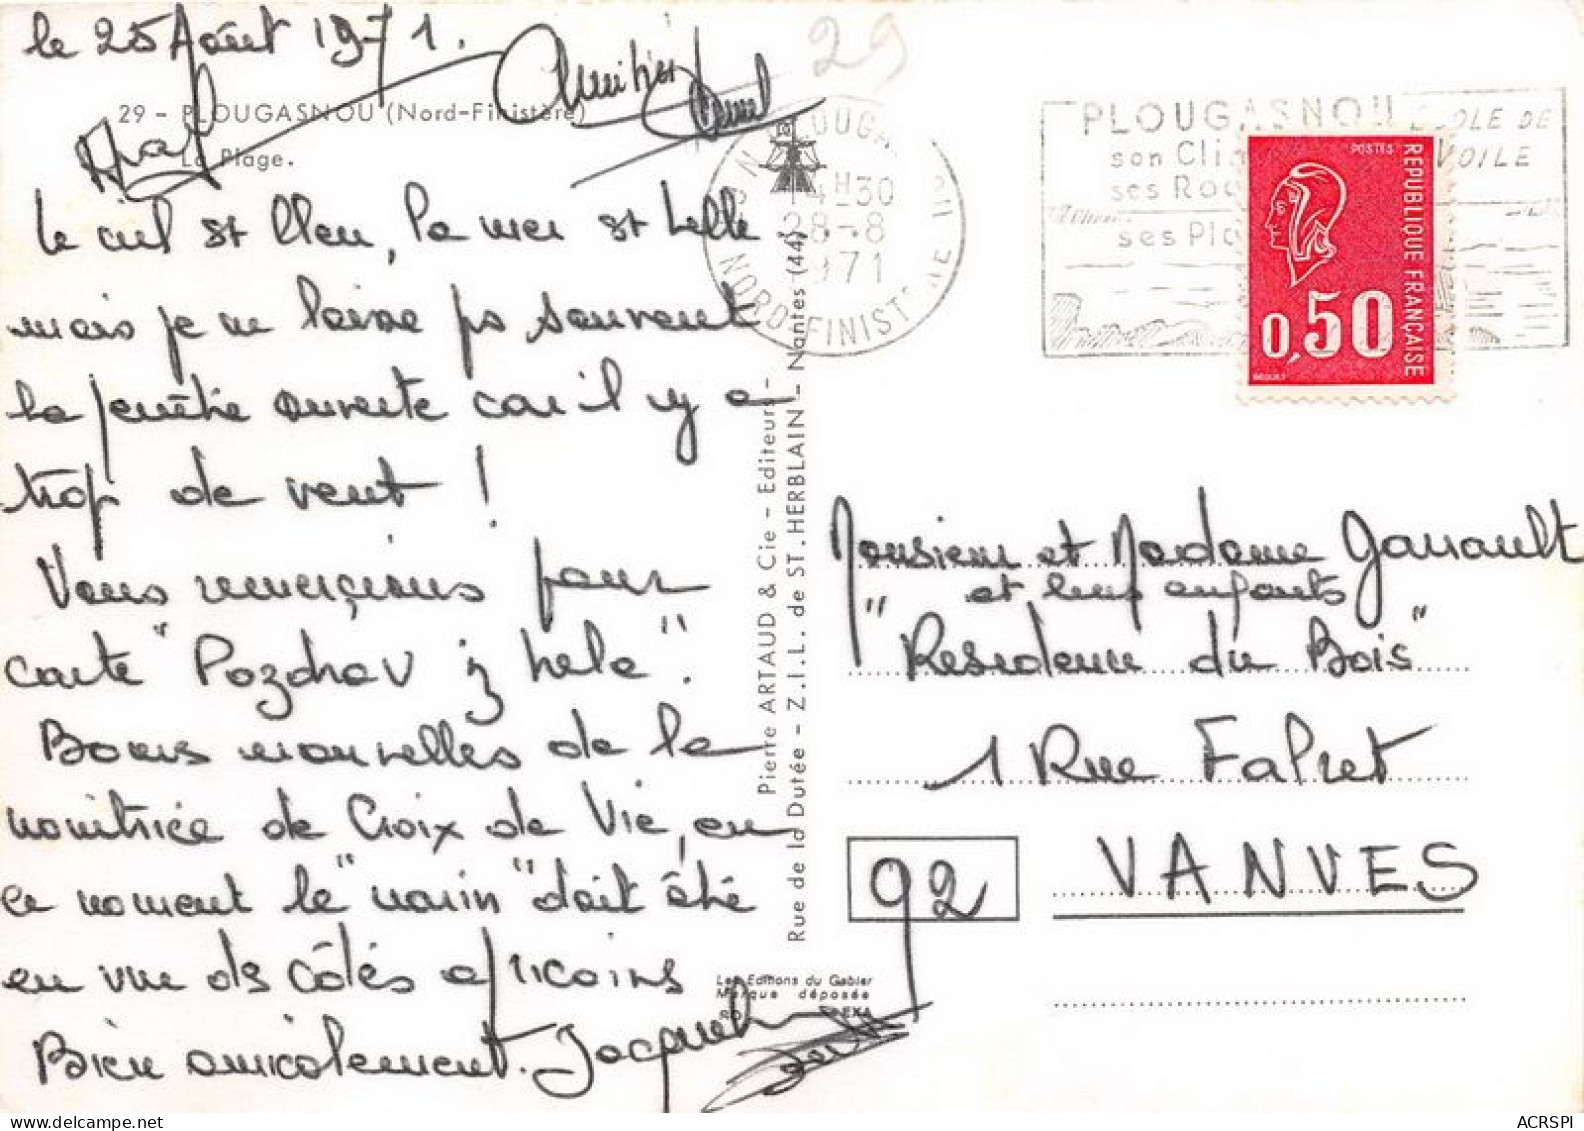 le 25 Août 1971.
29
29 - PLOUGASNOU (Nord-Finistère)
La Plage.
Le ciel st bleu, la mer st belle
mais je ne laisse ps souvent
la fenêtre ouverte car il y a
trop de vent !
Vous remercions pour
carte "Pozdrav iz hele".
Bonnes nouvelles de la
monitrice de Croix de Vie, en
ce moment le "marin" doit être
en vue ds côtés africains
Bien amicalement. Jacqueline
Pierre ARTAUD & Cie - Editeurs -
Rue de la Dutée - Z.I.L. de ST. HERBLAIN - Nantes (44)
Les Editions du Gabier
Marque déposée
14H30
28-8
1971
NORD-FINISTERE
PLOUGASNOU ECOLE DE
son VOILE
ses
ses
POSTES
REPUBLIQUE FRANÇAISE
0,50
BEQUET
Monsieur et Madame Garrault
et leurs enfants
"Residence du Bois"
1 Rue Falret
92 VANVES
ACRSPI